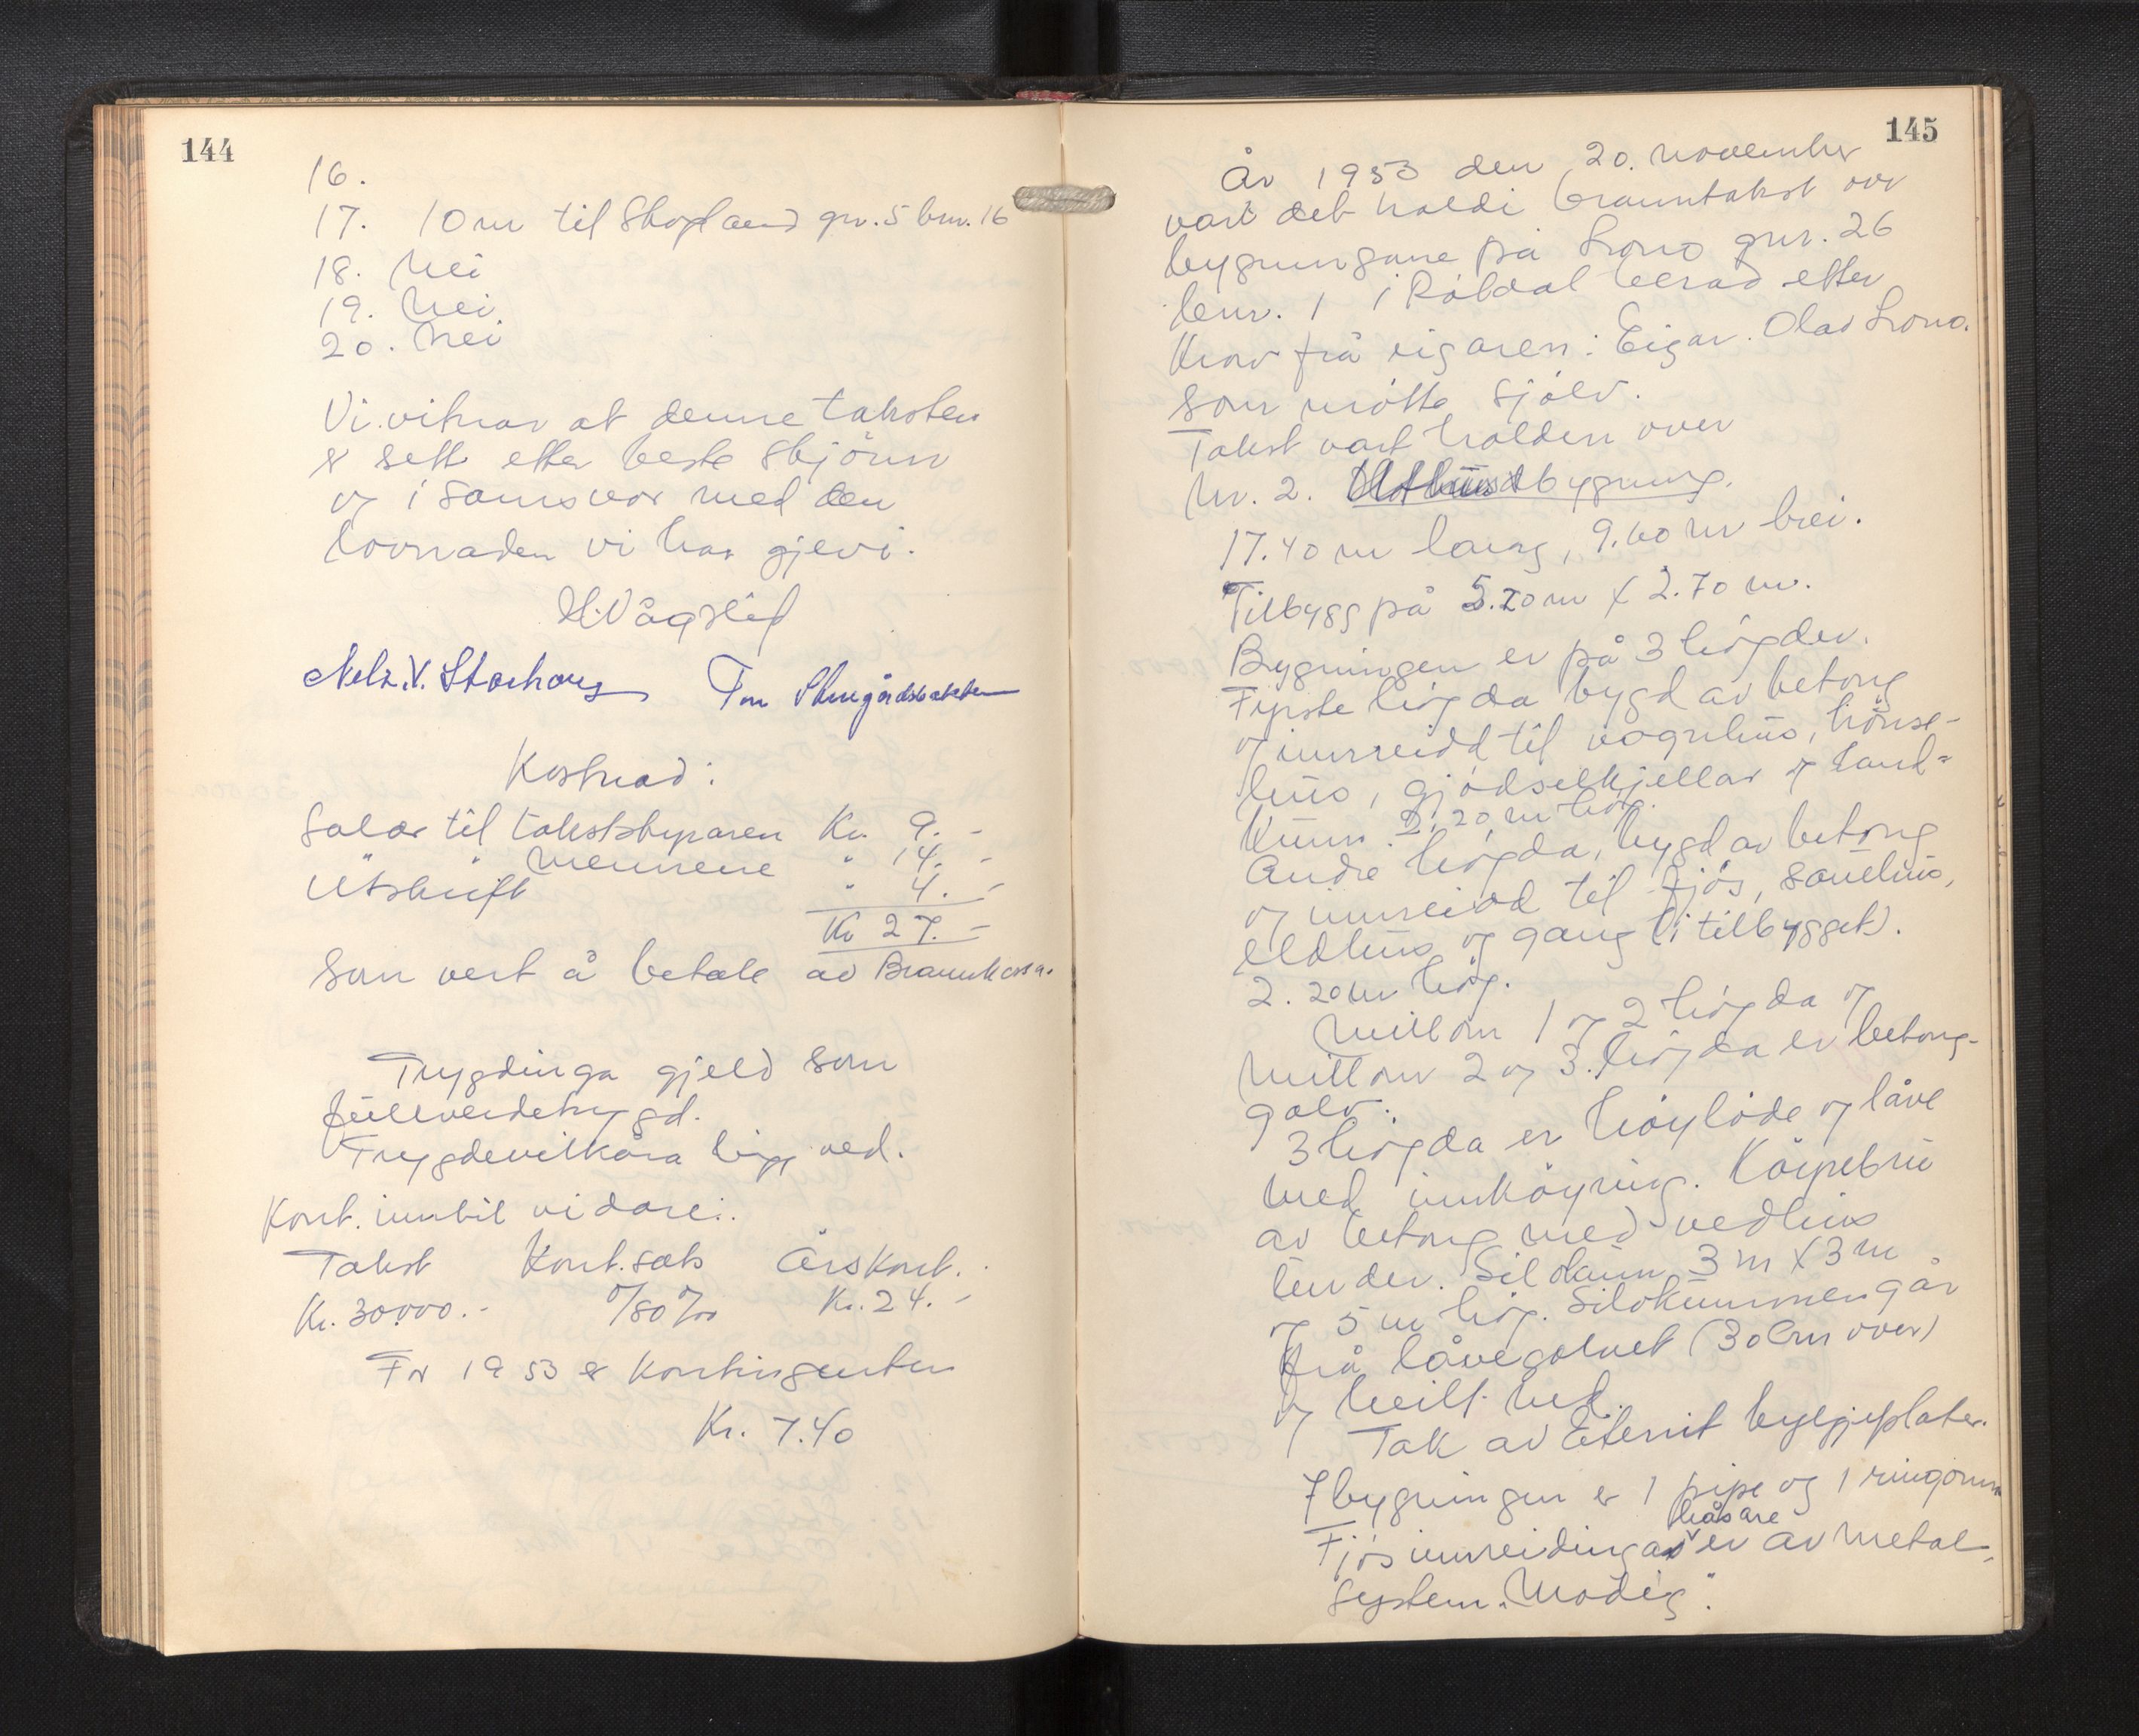 144
16.
17. 10 m til Skogland gnr. 5 bnr. 16
18. Nei
19. Nei
20. Nei
Vi vitnar at denne taksten
er sett etter beste skjönn
og i samsvar med den
lovnaden vi har gjevi.
H. Vågslid
Nels. V. Storhaug
Kostnad:
Salær til takststyraren Kr. 9.-
" " mennene " 14.-
Utskrift " 4.-
Kr 27.-
som vert å betale av Brannkassa.
Trygdinga gjeld som
fullverdetrygd.
Trygdevilkåra ligg ved.
Kont. inntil vidare:
Takst Kont.sats Årskont.
Kr. 30000.- 0/80 ‰ Kr. 24.-
For 1953 er kontingenten
Kr. 7.40
145
År 1953 den 20. november
vart det haldi branntakst over
bygningane på Lono gnr. 26
bnr. 1 i Röldal herad etter
krav frå eigaren: Eigar: Olav Lono.
som mötte sjölv.
Takst vart halden over
Nr. 2. bygning.
17.40 m lang, 9.60 m brei.
Tilbygg på 5.20 m x 2.70 m.
Bygningen er på 3 högder.
Fyrste högda bygd av betong
og innreidd til vognhus, hönse-
hus, gjödselkjellar og land-
kum. 2.20 m hög.
Andre högda, bygd av betong
og innreidd til fjös, sauehus,
eldhus og gang (i tilbygget).
2.20 m hög.
Millom 1 og 2 högda og
millom 2 og 3. högda er betong-
golv.
3 högda er höylöde og låve
med innköyring. Köyrebru
av betong med vedhus
under. Silokum 3 m x 3 m
og 5 m hög. Silokummen går
frå låvegolvet (30 cm over)
og heilt ned.
Tak av Eternit bylgjeplater.
I bygningen er 1 pipe og 1 ringomn
Fjösinnreidinga båsane er av metal,
system "Modig".